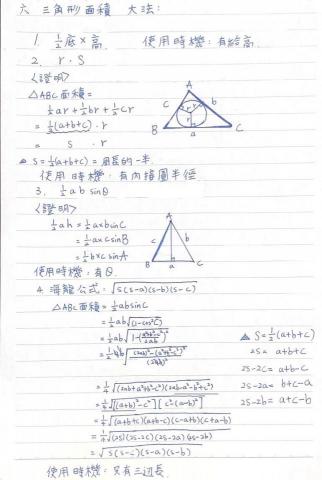 六 三角形面積 大法:
1. ½底×高 使用時機:有給高.
2. r·S
<證明>
△ABC面積=
½ar+½br+½cr
= ½(a+b+c)·r
= S · r
S=½(a+b+c)=周長的一半.
使用時機:有內接圓半徑
3. ½ab sinθ
<證明>
½ah = ½a×b sinC
= ½a×c sinB
= ½b×c sinA
使用時機:有θ.
4. 海龍公式: √S(S-a)(S-b)(S-c)
△ABC面積=½ab sinC
= ½ab√(1-cos²C)
= ½ab√1-(a²+b²-c²/2ab)²
= ¼√(2ab+a²+b²-c²)(2ab-a²-b²+c²)
= ¼√[(a+b)²-c²][c²-(a-b)²]
= ¼√(a+b+c)(a+b-c)(c-a+b)(c+a-b)
= ¼√(2S)(2S-2c)(2S-2a)(2S-2b)
= √S(S-c)(S-a)(S-b)
S=½(a+b+c)
2S= a+b+c
2S-2C=a+b-c
2S-2a=b+c-a
2S-2b=a+c-b
使用時機:只有三邊長
A
c
b
r
r
r
B
a
C
A
c
b
B
a
C